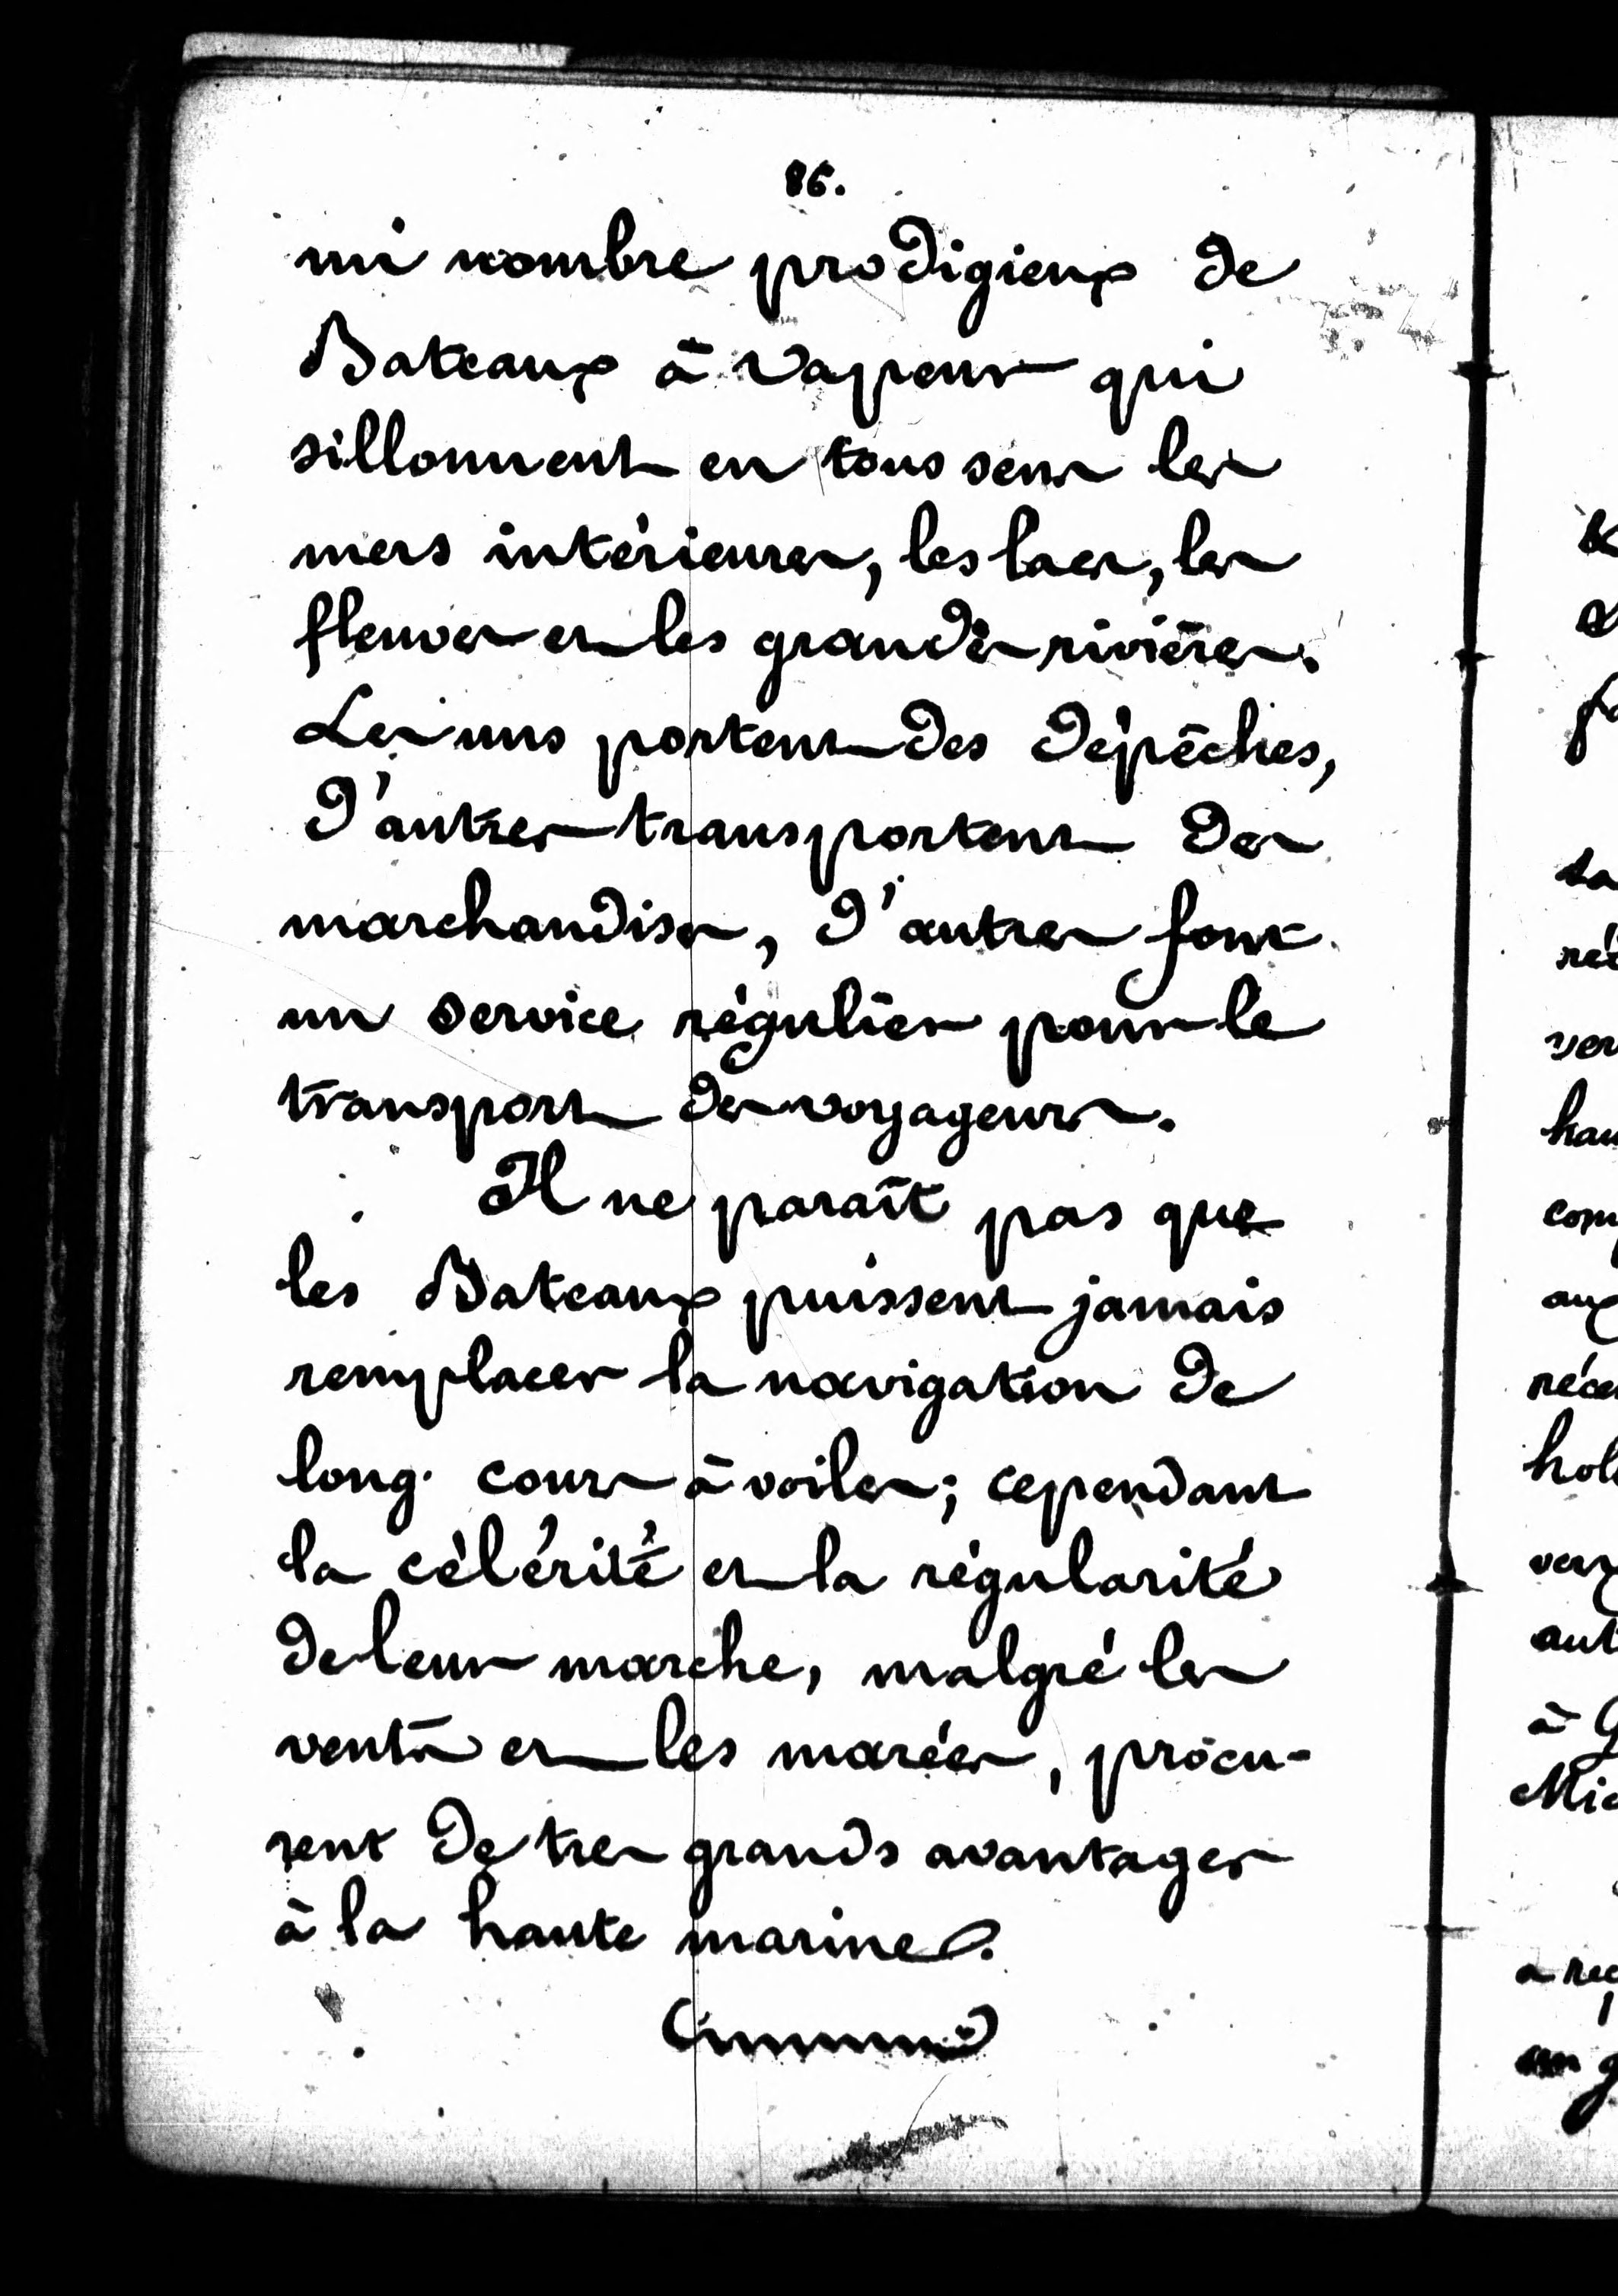 86.
un nombre prodigieux de
Bateaux à vapeur qui
sillonnent en tous sens les
mers intérieures, les lacs, les
fleuves et les grandes rivières.
Les uns portent des dépêches,
d'autres transportent des
marchandises, d'autres font
un service régulier pour le
transport des voyageurs.
Il ne paraît pas que
les Bateaux puissent jamais
remplacer la navigation de
long cours à voiles; cependant
la célérité et la régularité
de leur marche, malgré les
vents et les marées, procu-
rent de tres grands avantages
à la haute marine.